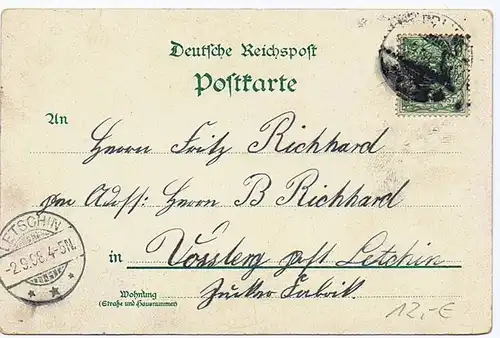 Deutsche Reichspost
Postkarte
An
Herrn Fritz Richhard
per Adrss: Herrn B Richhard
in Vossberg post Letchin
Wohnung
(Straße und Hausnummer)
Zucker Fabrik.
LETSCHIN
-2.9.98.4-5N.
12,-€